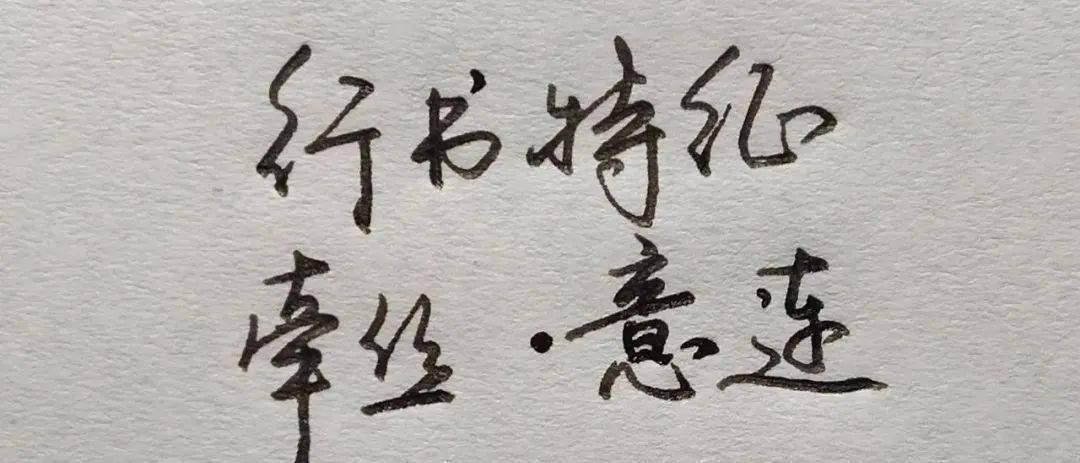 行书特征
牵丝·意连